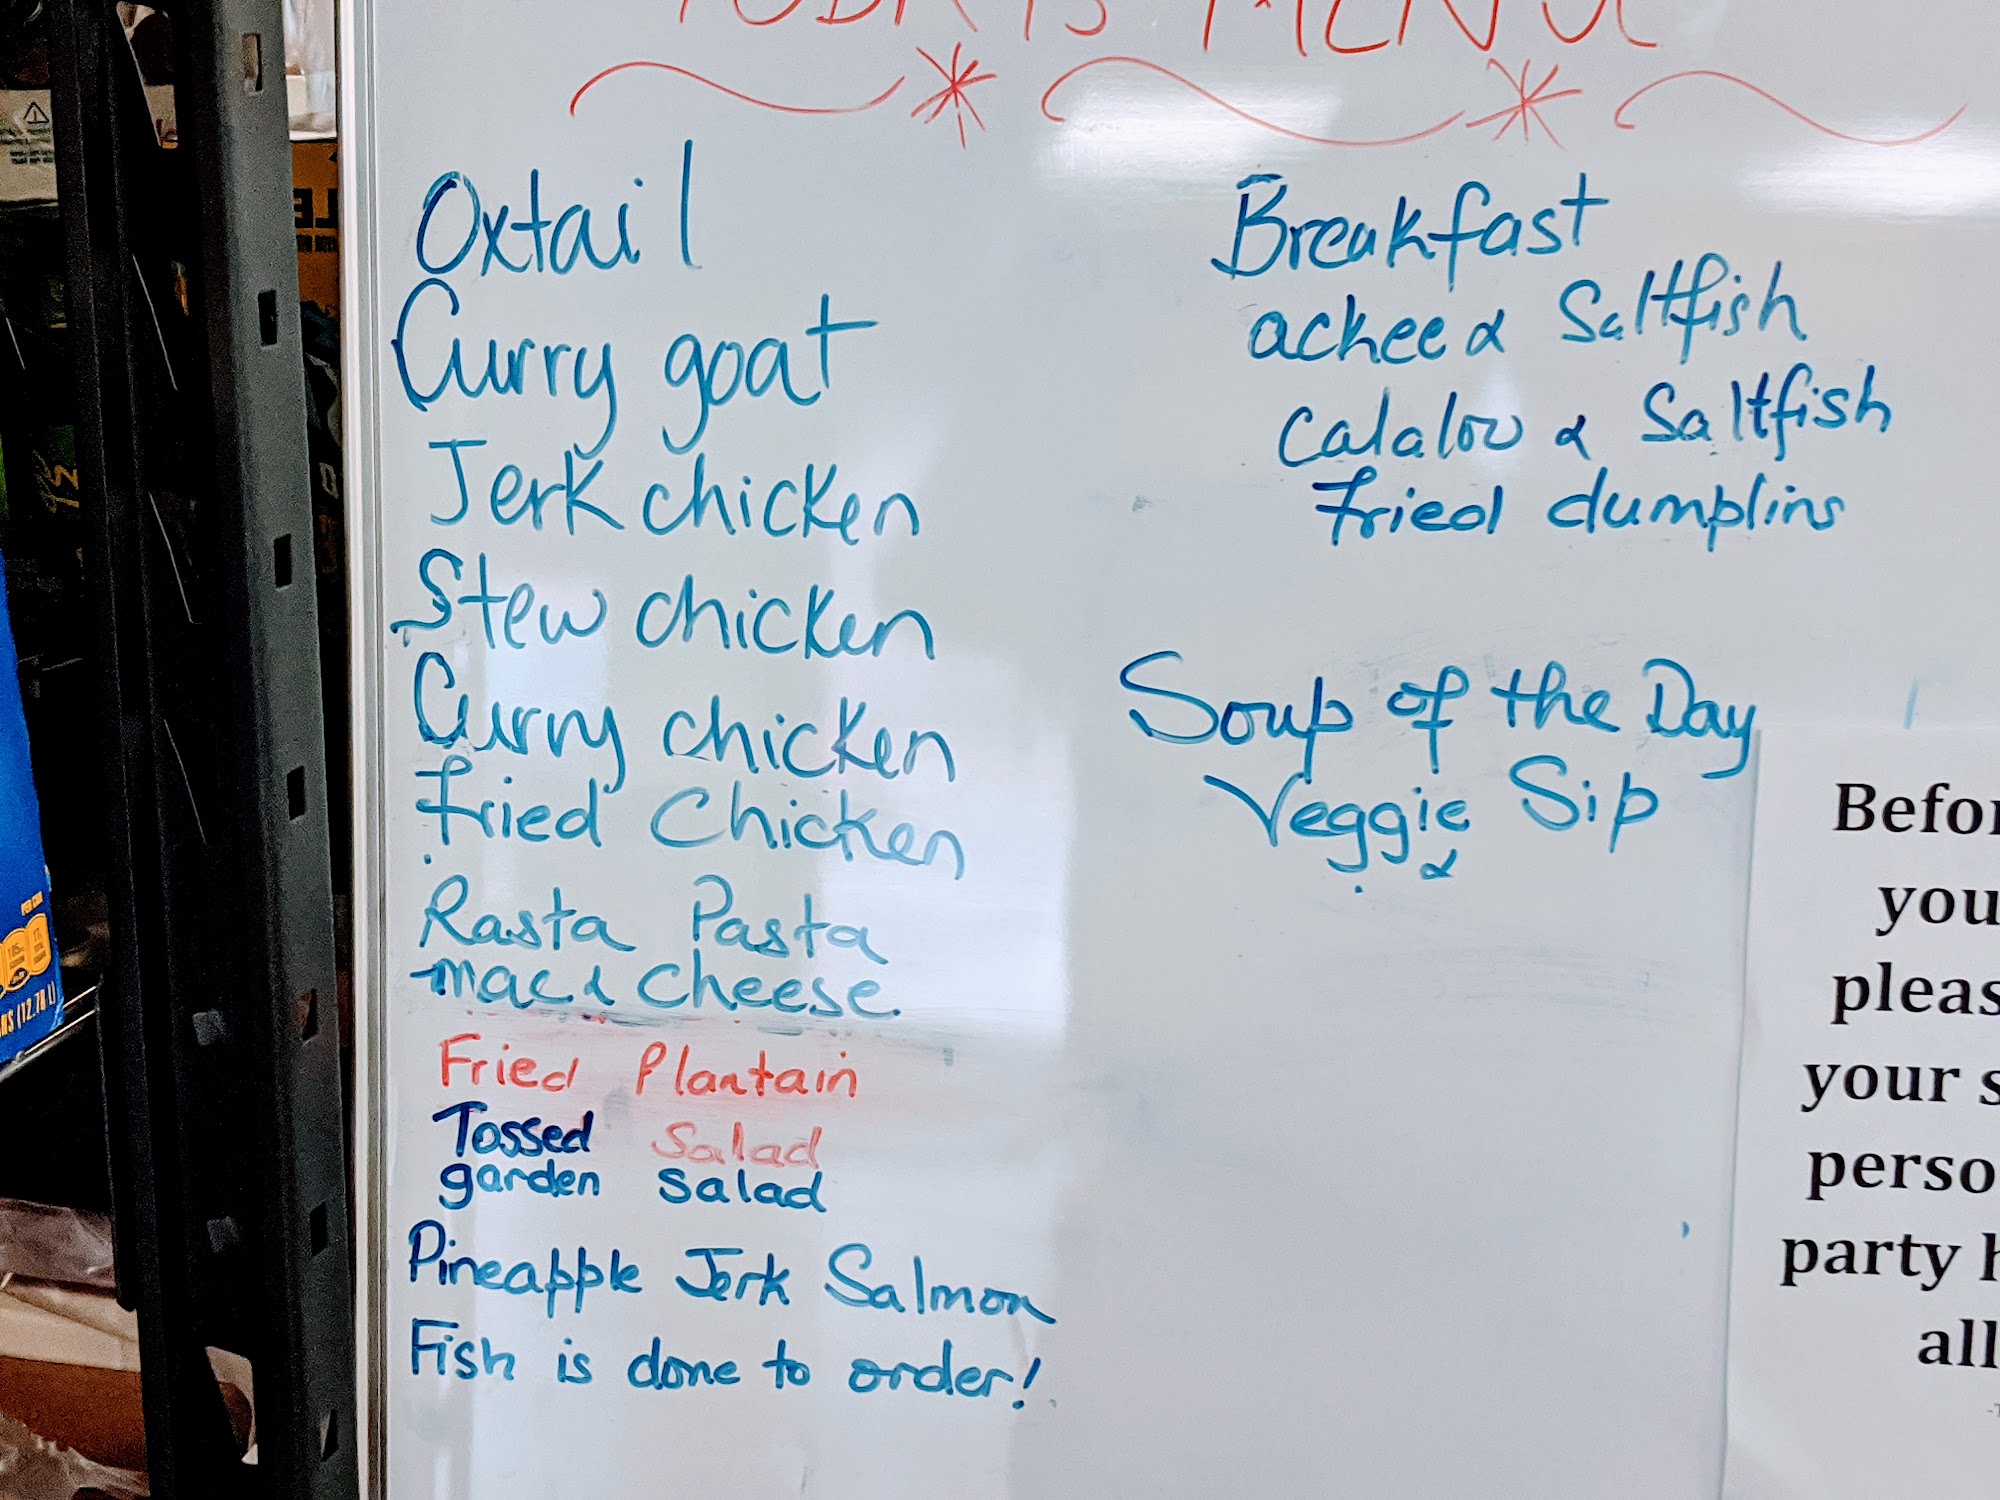 MENU
Oxtail
Curry goat
Jerk chicken
Stew chicken
Curry chicken
Fried Chicken
Rasta Pasta
mac & cheese
Fried Plantain
Tossed Salad
garden salad
Pineapple Jerk Salmon
Fish is done to order!
Breakfast
ackee & Saltfish
Calalou & Saltfish
Fried dumplins
Soup of the Day
Veggie Sip
&
Befor
you
pleas
your s
perso
party h
all